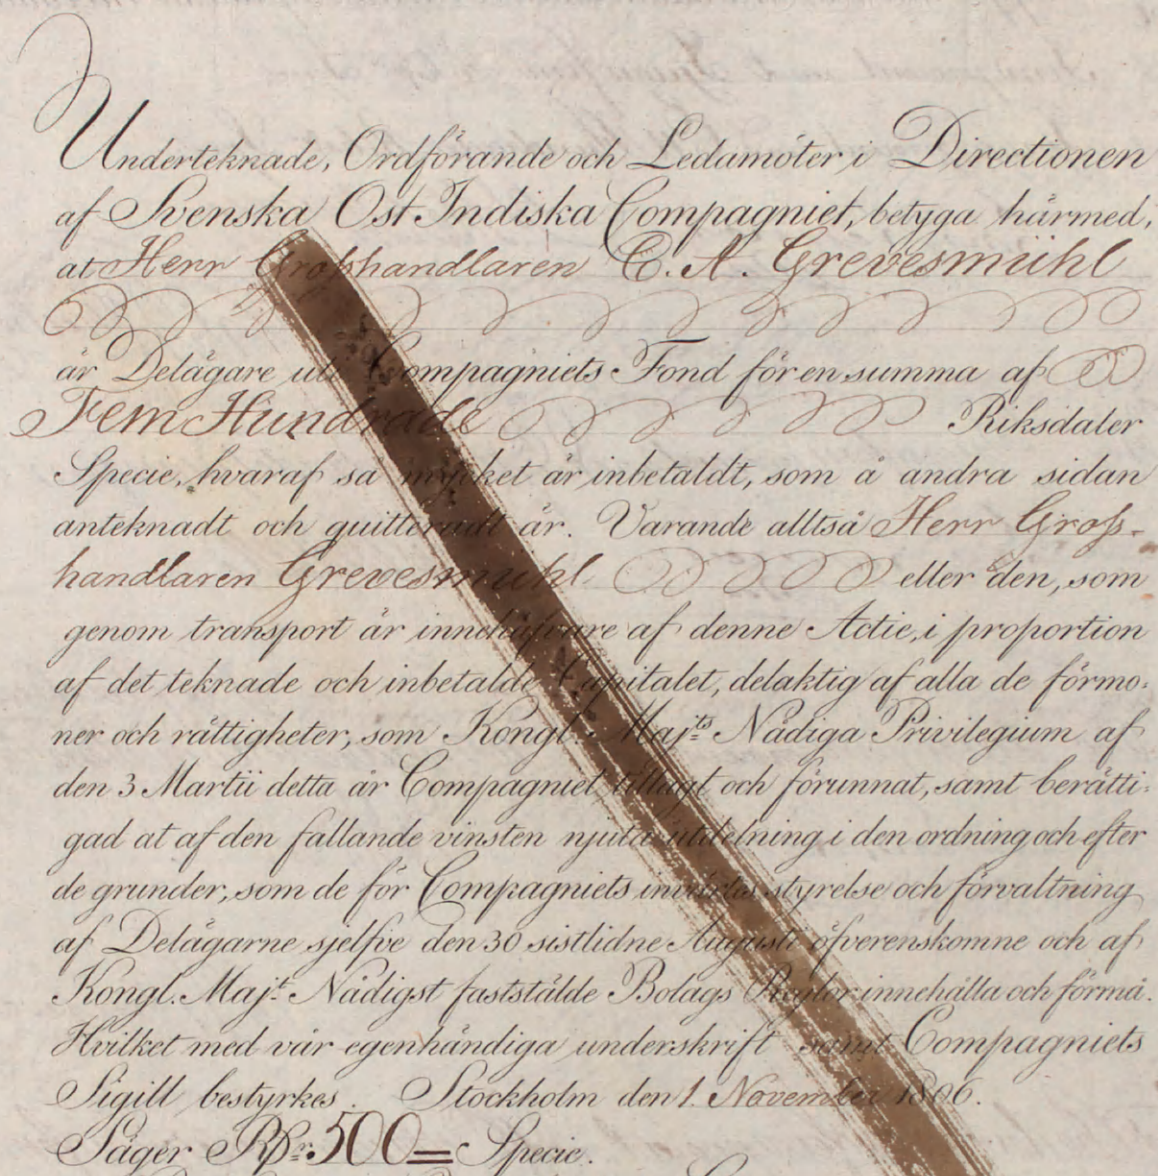 Underteknade, Ordförande och Ledamöter i Directionen
af Svenska Ost Indiska Compagniet, betyga härmed,
at Herr Großhandlaren C. A. Grevesmühl
är Delägare uti Compagniets Fond för en summa af
Fem Hundrade Riksdaler
Specie, hvaraf så mycket är inbetaldt, som å andra sidan
anteknadt och quitteradt är. Varande alltså Herr Groß-
handlaren Grevesmühl eller den, som
genom transport är innehafvare af denne Actie, i proportion
af det teknade och inbetalde Capitalet, delaktig af alla de förmo-
ner och rättigheter, som Kongl. Maj:ts Nådiga Privilegium af
den 3 Martii detta år Compagniet tillagt och förunnat, samt berätti-
gad at af den fallande vinsten njuta utdelning i den ordning och efter
de grunder, som de för Compagniets invärtes styrelse och förvaltning
af Delägarne sjelfve den 30 sistlidne Augusti öfverenskomne och af
Kongl. Maj:t Nådigst faststälde Bolags Reglor innehålla och förmå.
Hvilket med vår egenhändiga underskrift samt Compagniets
Sigill bestyrkes. Stockholm den 1. November 1806.
Säger Rdr 500 = Specie.